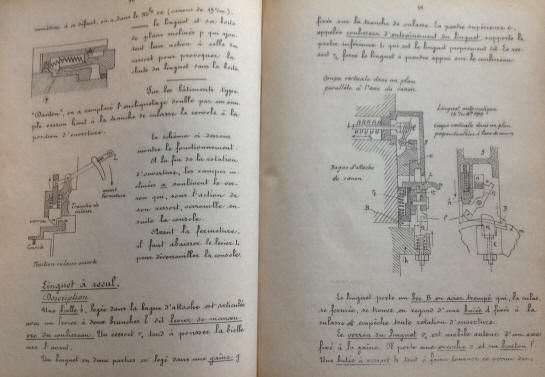 remédier à ce défaut, on a dans le
mun le linguet et sa boîte
de plans inclinés p qui ajou-
tent leur action à celle du
ressort pour provoquer la
chute du linguet dans la boîte.
Sur les bâtiments type
"Danton", on a remplacé l'encliquetage double par un sim-
ple verrou liant à la tranche de culasse la console à la
position d'ouverture.
Le schéma ci dessous
montre le fonctionnement.
A la fin de la rotation
d'ouverture, les rampes in-
clinées a soulèvent le ver-
rou qui, sous l'action de
son ressort, verrouille en-
suite la console.
Avant la fermeture,
il faut abaisser le levier L
pour déverrouiller la console.
avant
fermeture
Tranche de
culasse
verrou
Console
Position culasse ouverte
Linguet à recul.
Description.
Une bielle b, logée dans la bague d'attache est articulée
avec un levier à deux branches l dit levier de manoeu-
vre du contrevou. Un ressort r, tend à pousser la bielle
vers l'avant.
Un linguet en deux parties est logé dans une gaîne g
fixée sur la tranche de culasse. La partie supérieure c,
appelée d'entraînement du linguet, supporte la
partie inférieure L qui est le linguet proprement dit. Un res-
sort r, force le linguet à prendre appui sur le
Coupe verticale dans un plan
parallèle à l'axe du canon
Linguet automatique
Coupe verticale dans un plan
perpendiculaire à l'axe du canon
Bague d'attache
de canon
Le linguet porte un bec B en acier trempé qui, la culas-
se fermée, se trouve en regard d'une butée d fixée à la
culasse et empêche toute rotation d'ouverture.
Le verrou du linguet v, est mobile autour d'un axe
fixé à la gaîne. Il porte une et un
Une butée à ressort t tend à faire tourner ce verrou dans